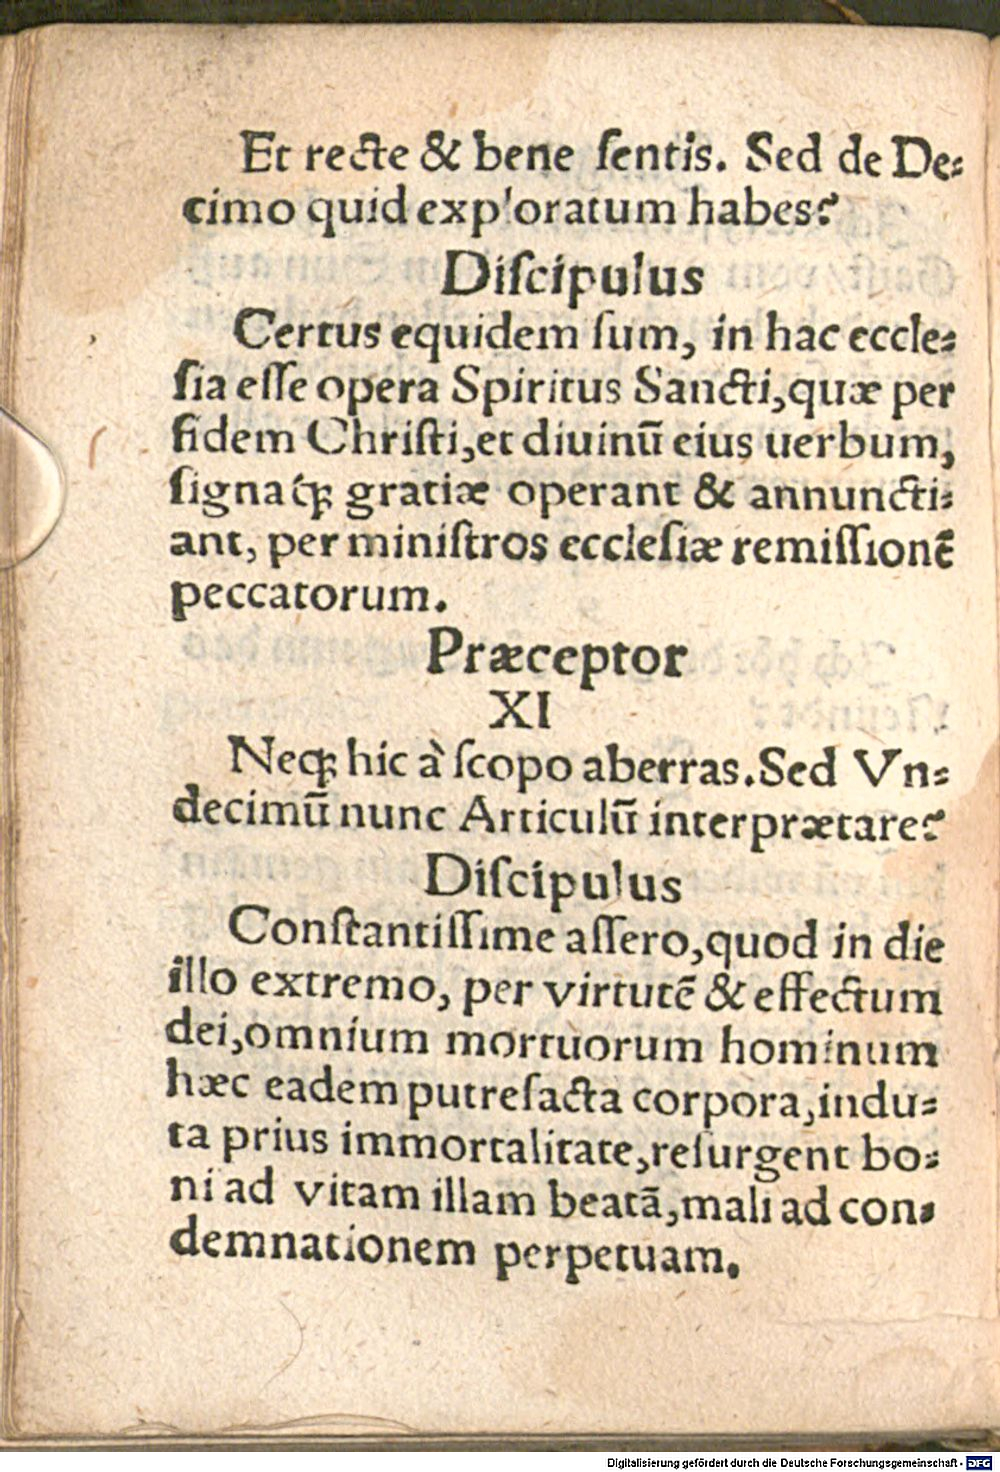 Et recte & bene ſentis. Sed de De⸗
cimo quid exploratum habes?
Diſcipulus
Certus equidem ſum, in hac eccle⸗
ſia eſſe opera Spiritus Sancti, quæ per
fidem Chriſti, et diuinū eius uerbum,
ſignaq́ꝫ gratiæ operant & annuncti⸗
ant, per miniſtros eccleſiæ remiſſionē
peccatorum.
Præceptor
XI
Neqꝫ hic à ſcopo aberras. Sed Vn⸗
decimū nunc Articulū interprætare?
Diſcipulus
Conſtantiſſime aſſero, quod in die
illo extremo, per virtutē & effectum
dei, omnium mortuorum hominum
hæc eadem putreſacta corpora, indu⸗
ta prius immortalitate, reſurgent bo⸗
ni ad vitam illam beatā, mali ad con⸗
demnationem perpetuam.
Digitalisierung gefördert durch die Deutsche Forschungsgemeinschaft - DFG